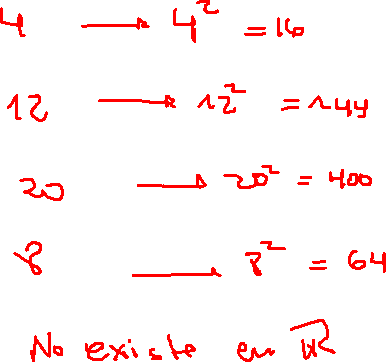 4 → 4² = 16
12 → 12² = 144
20 → 20² = 400
8 → 8² = 64
No existe en ℝ